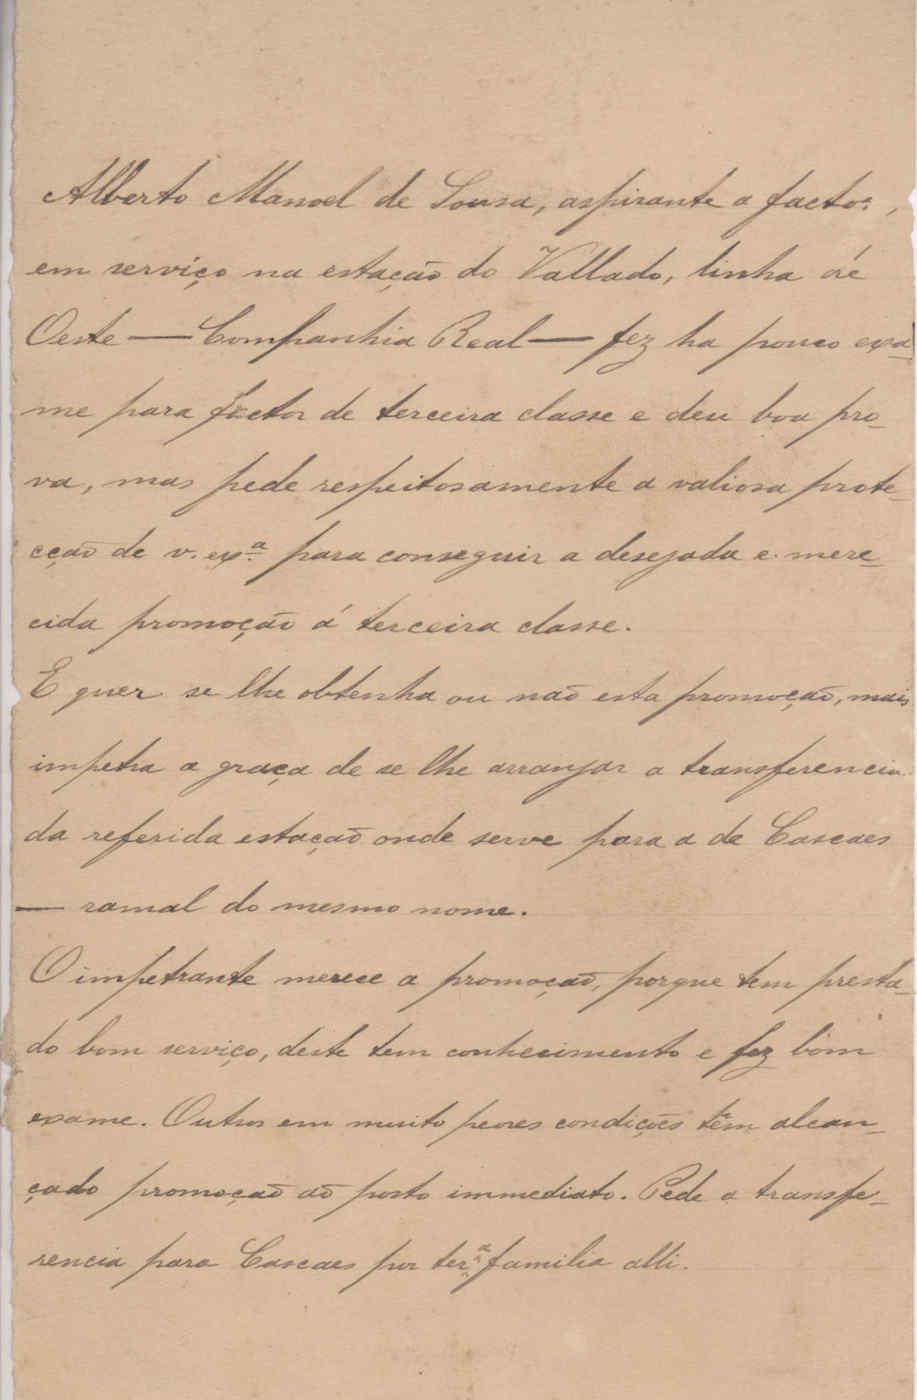 Alberto Manoel de Sousa, aspirante a factor,
em serviço na estação do Vallado, linha de
Oeste — Companhia Real — fez ha pouco exa-
me para factor de terceira classe e deu boa pro-
va, mas pede respeitosamente a valiosa prote-
cção de v. ex.ª para conseguir a desejada e mere-
cida promoção á terceira classe.
E quer se lhe obtenha ou não esta promoção, mais
impetra a graça de se lhe arranjar a transferencia
da referida estação onde serve para a de Cascaes
— ramal do mesmo nome.
O impetrante merece a promoção, porque tem presta-
do bom serviço, deste tem conhecimento e fez bom
exame. Outros em muito peores condições têm alcan-
çado promoção ao posto immediato. Pede a transfe-
rencia para Cascaes por ter a familia alli.